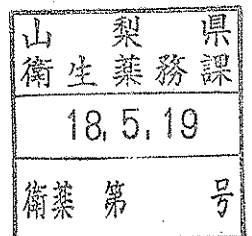 山梨県
衛生薬務課
18.5.19
衛薬第 号